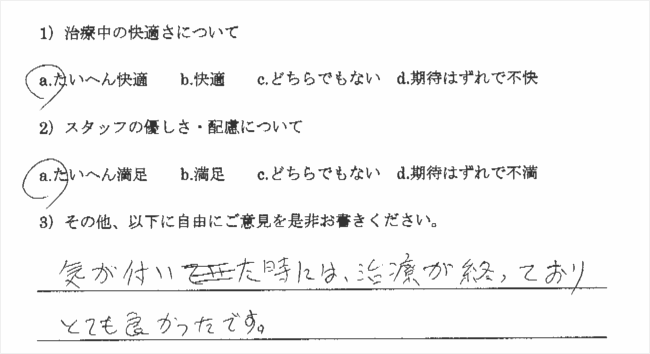 1) 治療中の快適さについて
a.たいへん快適 b.快適 c.どちらでもない d.期待はずれで不快
2) スタッフの優しさ・配慮について
a.たいへん満足 b.満足 c.どちらでもない d.期待はずれで不満
3) その他、以下に自由にご意見を是非お書きください。
気が付いた時には、治療が終っており
とても良かったです。